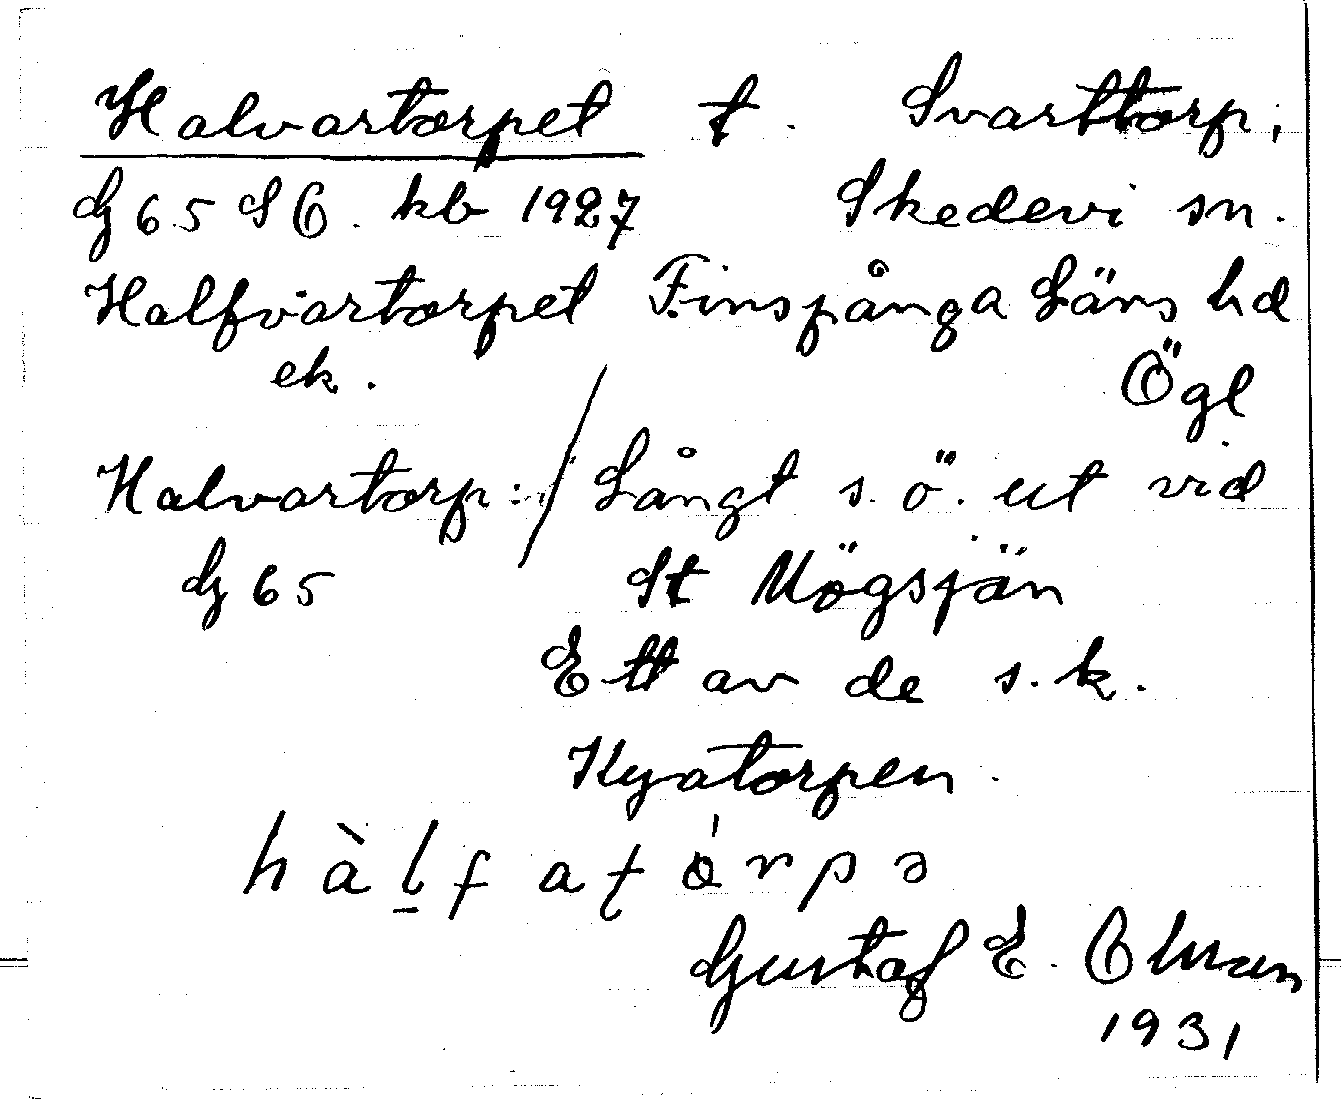 Halvartorpet t. Svarttorp,
G 65 SO. kb 1927 Skedevi sn.
Halfvartorpet Finspånga Läns hd
ek. Ögl
Halvartorp: / Långt s. ö. ut vid
G 65 St Mögsjön
Ett av de s.k.
Kyatorpen.
hàlfatórpə
Gustaf E. Olman
1931